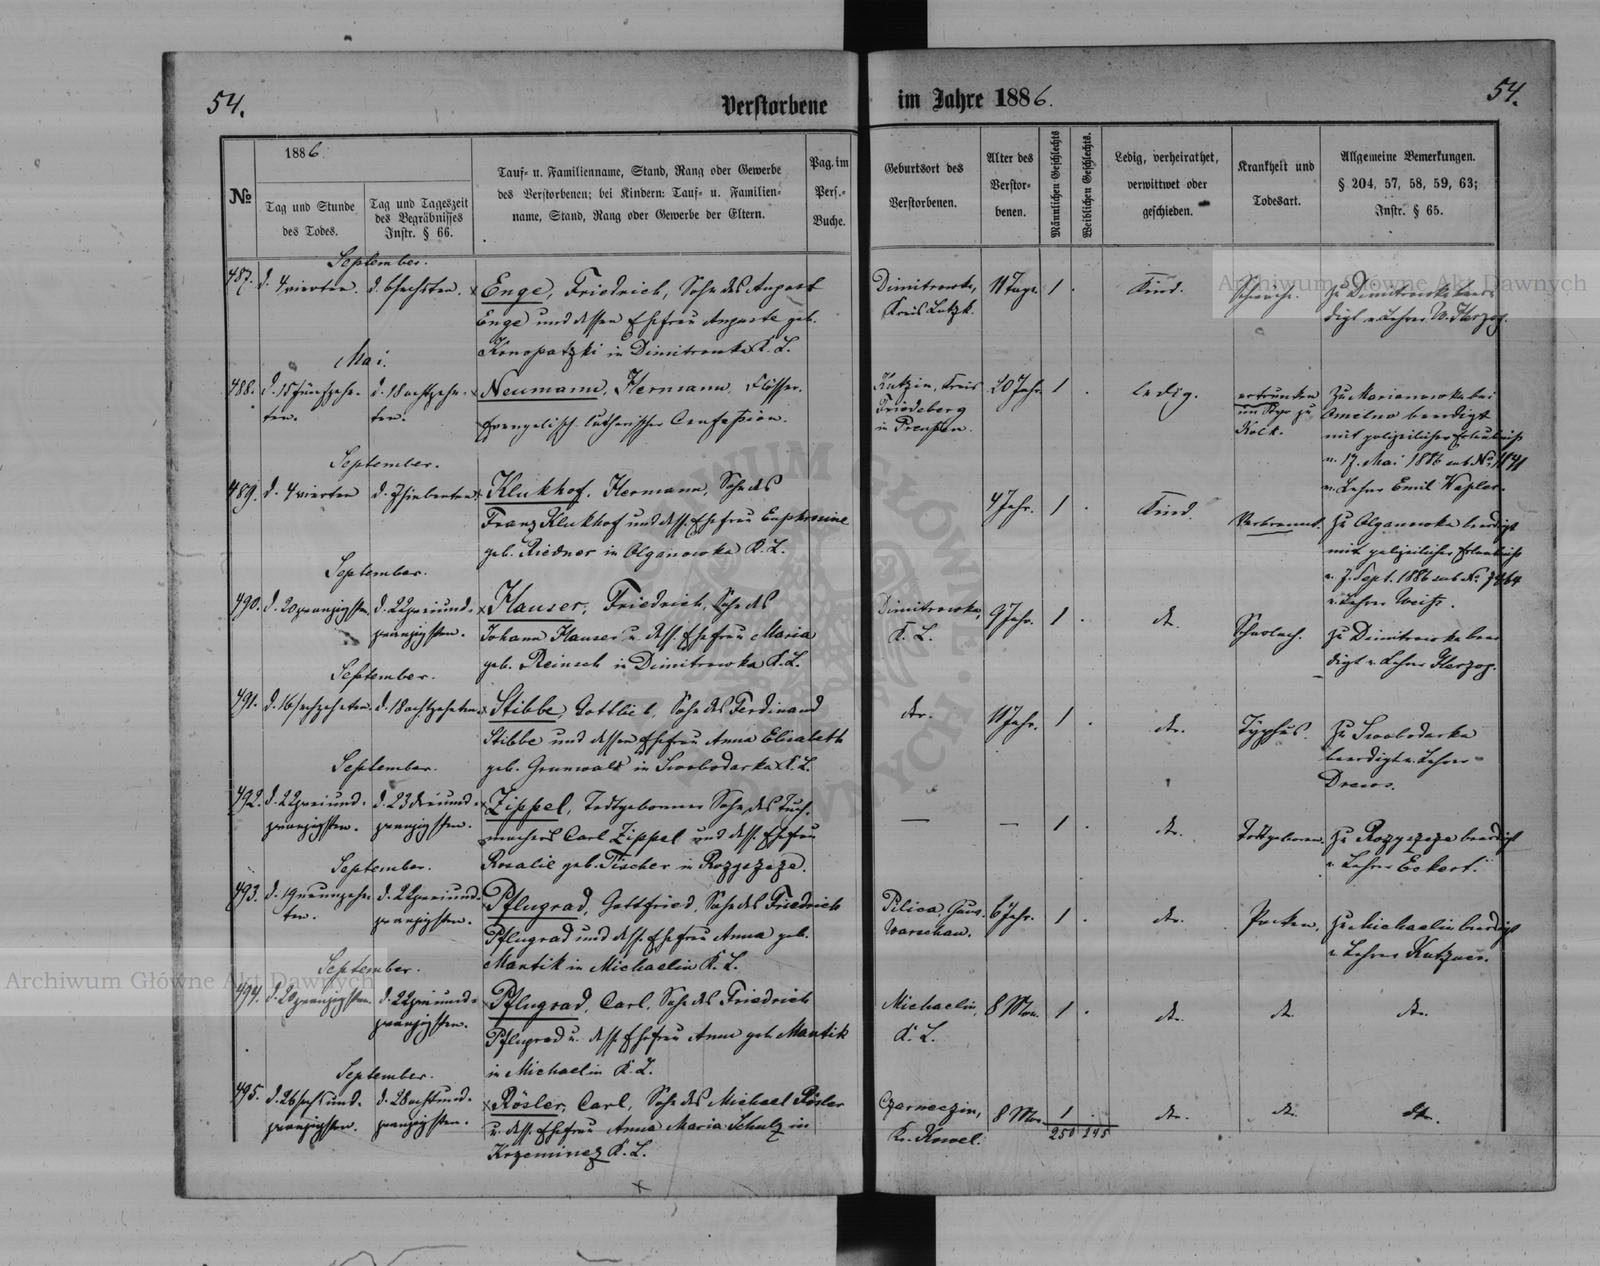 54.
Verstorbene
im Jahre 1886.
54.
№
1886
Tag und Stunde
des Todes.
Tag und Tageszeit
des Begräbnisses
Instr. § 66.
Tauf- u. Familienname, Stand, Rang oder Gewerbe
des Verstorbenen; bei Kindern: Tauf- u. Familien-
name, Stand, Rang oder Gewerbe der Eltern.
Pag. im
Pers.-
Buche.
Geburtsort des
Verstorbenen.
Alter des
Verstor-
benen.
Männlichen Geschlechts
Weiblichen Geschlechts.
Ledig, verheirathet,
verwittwet oder
geschieden.
Krankheit und
Todesart.
Allgemeine Bemerkungen.
§ 204, 57, 58, 59, 63;
Instr. § 65.
September.
487. d. 4 vierten. d. 6 sechsten. x Enge, Friedrich, Sohn des August
Enge und dessen Ehefrau Auguste geb.
Konopatzki in Dimitrowka K. L.
Dimitrowka,
Kreis Lutzk.
11 Tage. 1 . Kind. Schwäche.
zu Dimitrowka beer-
digt v. Lehrer A. Herzog.
Mai.
488. d. 15 fünfzehn-
ten.
d. 18 achtzehn-
ten.
x Neumann, Hermann, Flösser.
Evangelisch lutherischer Confession.
Kutzin, Kreis
Friedeberg
in Preußen.
20 Jahr. 1 . ledig.
ertrunken
im Styr zu
Kolk.
zu Marianowka bei
beerdigt
mit polizeilicher Erlaubniß
v. 17. Mai 1886 sub №. 1171
v. Lehrer Emil Kapler.
September.
489. d. 4 vierten d. 7 siebenten x Klukhof, Hermann, Sohn des
Franz Klukhof und dess. Ehefrau Euphrosine
geb. Riedner in Olganowka K. L.
4 Jahr. 1 . Kind. Verbrannt.
zu Olganowka beerdigt
mit polizeilicher Erlaubniß
v. 7. Sept. 1886 sub №. 7464
v. Lehrer Weiß.
September.
490. d. 20 zwanzigsten d. 22 zweiund-
zwanzigsten.
x Hauser, Friedrich, Sohn des
Johann Hauser u. dess. Ehefrau Maria
geb. Reinsch in Dimitrowka K. L.
Dimitrowka,
K. L.
9 Jahr. 1 . do. Scharlach.
zu Dimitrowka beer-
digt v. Lehrer Herzog.
September.
491. d. 16 sechzehnten. d. 18 achtzehnten. x Stibbe, Gottlieb, Sohn des Ferdinand
Stibbe und dessen Ehefrau Anna Elisabeth
geb. Grunwald in Swobodarka K. L.
do. 11 Jahr. 1 . do. Typhus.
zu Swobodarka
beerdigt v. Lehrer
Drews.
September.
492. d. 22 zweiund-
zwanzigsten.
d. 23 dreiund-
zwanzigsten.
x Zippel, Todtgeborener Sohn des Tuch-
machers Carl Zippel und dess. Ehefrau
Rosalie geb. Tischer in Rozyszcze.
— — 1 . do. Todtgeboren.
zu Rozyszcze beerdigt
v. Lehrer Eckert.
September.
493. d. 19 neunzehn-
ten.
d. 22 zweiund-
zwanzigsten.
x Pflugrad, Gottfried, Sohn des Friedrich
Pflugrad und dess. Ehefrau Anna geb.
Mantik in Michaelin K. L.
Pilica, Gouv.
Warschau.
6 Jahr. 1 . do. Pocken.
zu Michaelin beerdigt
v. Lehrer Kutzner.
September.
494. d. 20 zwanzigsten. d. 22 zweiund-
zwanzigsten.
x Pflugrad, Carl, Sohn des Friedrich
Pflugrad u. dess. Ehefrau Anna geb. Mantik
in Michaelin K. L.
Michaelin,
K. L.
8 Mon. 1 . do. do. do.
September.
495. d. 26 sechsund-
zwanzigsten.
d. 28 achtund-
zwanzigsten.
x Rösler, Carl, Sohn des Michael Rösler
u. dess. Ehefrau Anna Maria Schulz in
Krzeminez K. L.
Czerneczin,
Kr. Kowel.
8 Mon. 1 . do. do. do.
250 245
Archiwum Główne Akt Dawnych
Archiwum Główne Akt Dawnych